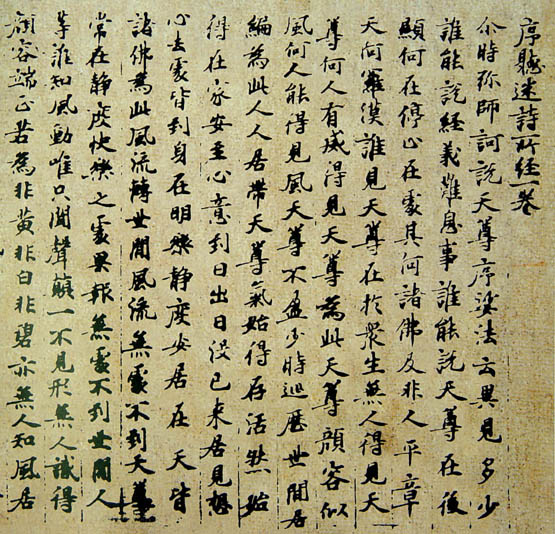 序聽迷詩所經一卷
尒時弥師訶說天尊序娑法云異見多少
誰能說經義難息事誰能說天尊在後
顯何在停止在處其何諸佛及非人平章
天阿羅漢誰見天尊在於衆生無人得見天
尊何人有威得見天尊為此天尊顏容似
風何人能得見風天尊不盈少時巡歷世間居
編為此人人居帶天尊氣始得存活然始
得在家安至心意到日出日没已来居見想
心去處皆到身在明樂静度安居在天皆
諸佛為此風流轉世間風流無處不到天尊
常在静度快樂之處果報無處不到世間人
等誰知風動唯只聞聲顛一不見形無人識得
顏容端正若為非黄非白非碧亦無人知風居